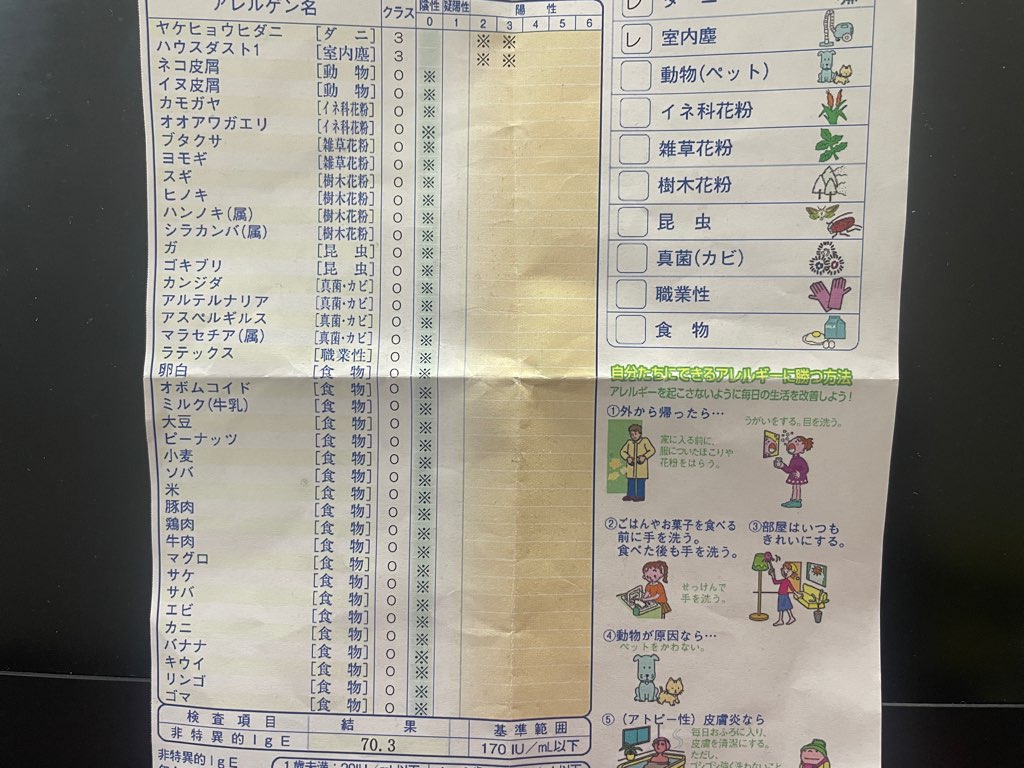 アレルゲン名 クラス 陰性 疑陽性 陽性
0 1 2 3 4 5 6
ヤケヒョウヒダニ [ダニ] 3 ※ ※
ハウスダスト1 [室内塵] 3 ※ ※
ネコ皮屑 [動物] 0 ※
イヌ皮屑 [動物] 0 ※
カモガヤ [イネ科花粉] 0 ※
オオアワガエリ [イネ科花粉] 0 ※
ブタクサ [雑草花粉] 0 ※
ヨモギ [雑草花粉] 0 ※
スギ [樹木花粉] 0 ※
ヒノキ [樹木花粉] 0 ※
ハンノキ(属) [樹木花粉] 0 ※
シラカンバ(属) [樹木花粉] 0 ※
ガ [昆虫] 0 ※
ゴキブリ [昆虫] 0 ※
カンジダ [真菌・カビ] 0 ※
アルテルナリア [真菌・カビ] 0 ※
アスペルギルス [真菌・カビ] 0 ※
マラセチア(属) [真菌・カビ] 0 ※
ラテックス [職業性] 0 ※
卵白 [食物] 0 ※
オボムコイド [食物] 0 ※
ミルク(牛乳) [食物] 0 ※
大豆 [食物] 0 ※
ピーナッツ [食物] 0 ※
小麦 [食物] 0 ※
ソバ [食物] 0 ※
米 [食物] 0 ※
豚肉 [食物] 0 ※
鶏肉 [食物] 0 ※
牛肉 [食物] 0 ※
マグロ [食物] 0 ※
サケ [食物] 0 ※
サバ [食物] 0 ※
エビ [食物] 0 ※
カニ [食物] 0 ※
バナナ [食物] 0 ※
キウイ [食物] 0 ※
リンゴ [食物] 0 ※
ゴマ [食物] 0 ※
検査項目 結果 基準範囲
非特異的IgE 70.3 170 IU/mL以下
非特異的IgE
1歳未満:20IU/mL以下
レ ダニ
レ 室内塵
動物(ペット)
イネ科花粉
雑草花粉
樹木花粉
昆虫
真菌(カビ)
職業性
食物
自分たちにできるアレルギーに勝つ方法
アレルギーを起こさないように毎日の生活を改善しよう!
①外から帰ったら…
家に入る前に、
服についたほこりや
花粉をはらう。
うがいをする。目を洗う。
②ごはんやお菓子を食べる
前に手を洗う。
食べた後も手を洗う。
せっけんで
手を洗う。
③部屋はいつも
きれいにする。
④動物が原因なら…
ペットをかわない。
⑤(アトピー性)皮膚炎なら
毎日おふろに入り、
皮膚を清潔にする。
ただし、
ゴシゴシ強く洗わないこと